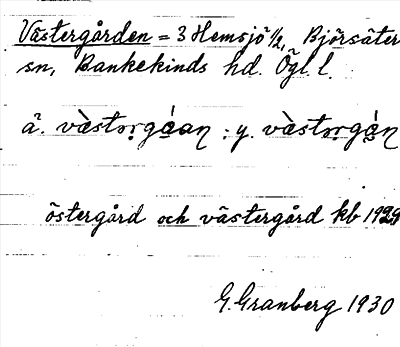 Västergården = 3 Hemsjö 1/2, Björsäter
sn, Bankekinds hd. Ögl. l.
ä. væ̀storgȧ́an ; y. væ̀storgȧ́n
östergård och västergård kb 1929
G. Granberg 1930